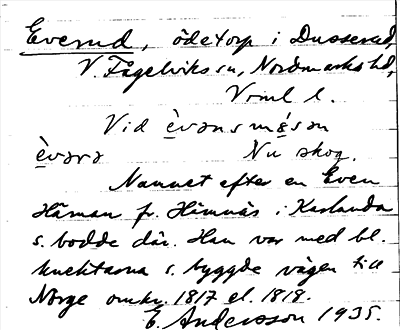 Everud, ödetorp i Dusserud,
V. Fågelviks sn, Nordmarks hd,
Vrml l.
Vid èvansmósan
èvara Nu skog.
Namnet efter en Even
Häman fr. Hämnäs i Karlanda
s. bodde där. Han var med bl.
knektarna s. byggde vägen till
Norge omkr. 1817 el. 1818.
E. Andersson 1935.